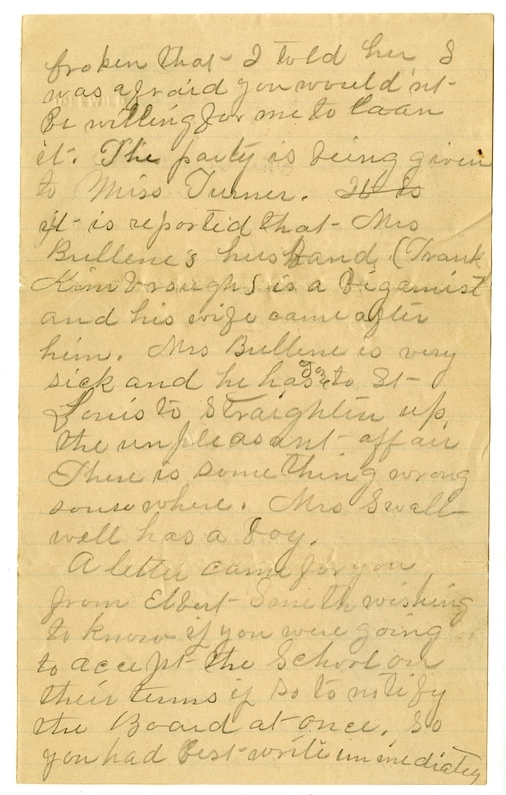 broken that I told her I
was afraid you would'nt
be willing for me to loan
it. The party is being given
to Miss Turner. It is
it is reported that Mrs
Bullene's husband (Frank
Kimbrough) is a bigamist
and his wife came after
him. Mrs Bullene is very
sick and he has gone to St
Louis to straighten up
the unpleasant affair
There is something wrong
somewhere. Mrs Swall-
well has a boy.
A letter came for you
from Elbert Smith wishing
to know if you were going
to accept the School on
their terms if so to notify
the Board at once. So
you had best write immediately